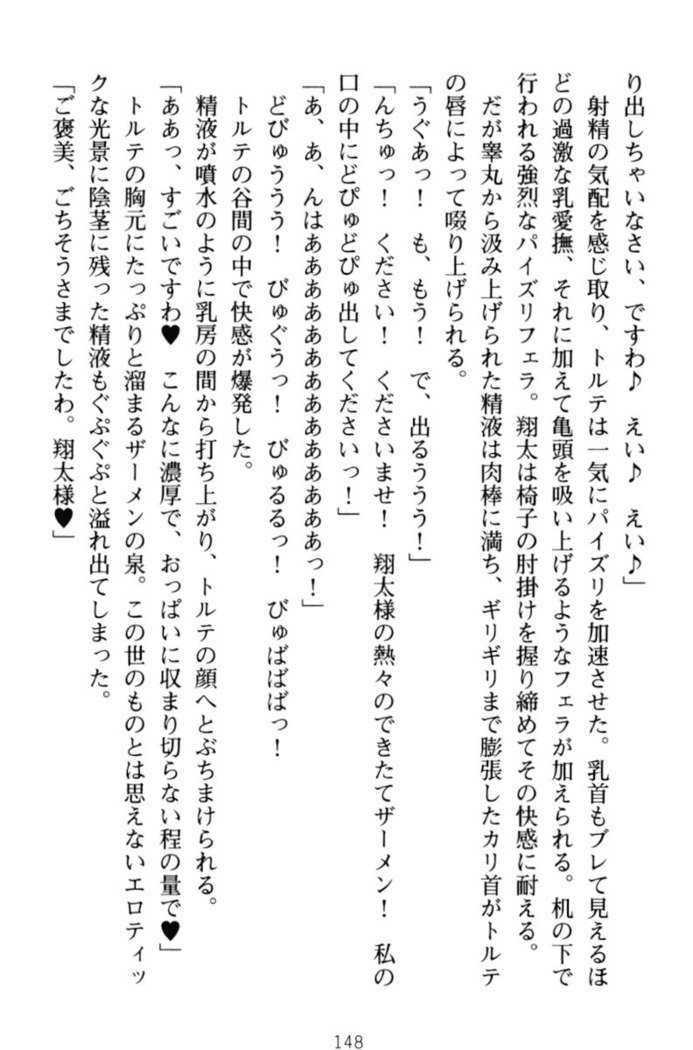 り出しちゃいなさい、ですわ♪　えい♪　えい♪」
　射精の気配を感じ取り、トルテは一気にパイズリを加速させた。乳首もブレて見えるほ
どの過激な乳愛撫、それに加えて亀頭を吸い上げるようなフェラが加えられる。机の下で
行われる強烈なパイズリフェラ。翔太は椅子の肘掛けを握り締めてその快感に耐える。
　だが睾丸から汲み上げられた精液は肉棒に満ち、ギリギリまで膨張したカリ首がトルテ
の唇によって啜り上げられる。
「うぐあっ！　も、もう！　で、出るううう！」
「んちゅっ！　ください！　くださいませ！　翔太様の熱々のできたてザーメン！　私の
口の中にどぴゅどぴゅ出してくださいっ！」
「あ、あ、んはあああああああああああああっ！」
　どびゅううう！　びゅぐうっ！　びゅるるっ！　びゅばばばっ！
　トルテの谷間の中で快感が爆発した。
　精液が噴水のように乳房の間から打ち上がり、トルテの顔へとぶちまけられる。
「ああっ、すごいですわ♥　こんなに濃厚で、おっぱいに収まり切らない程の量で♥」
　トルテの胸元にたっぷりと溜まるザーメンの泉。この世のものとは思えないエロティッ
クな光景に陰茎に残った精液もぐぷぐぷと溢れ出てしまった。
「ご褒美、ごちそうさまでしたわ。翔太様♥」
148